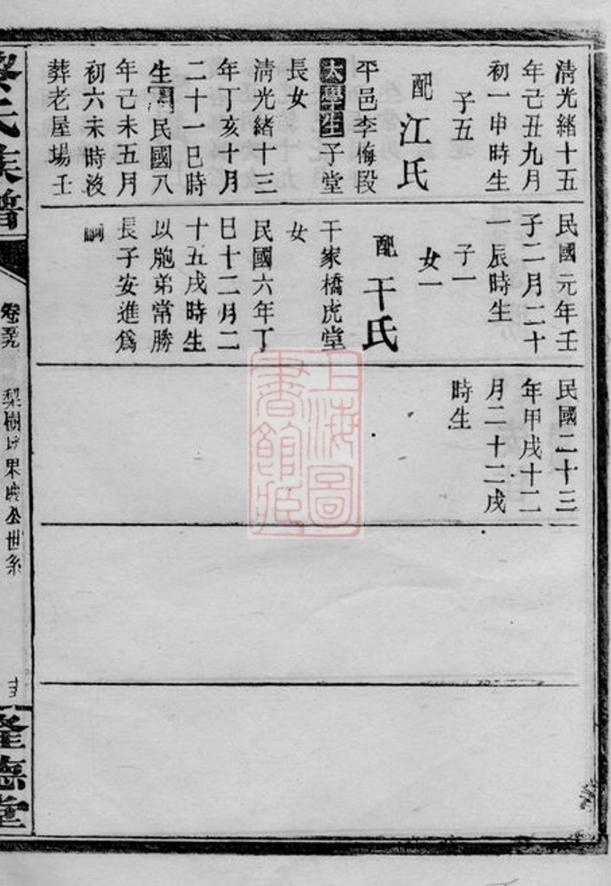 清光緒十五
年己丑九月
初一申時生
子五
配江氏
平邑李梅段
太學生子堂
長女
清光緒十三
年丁亥十月
二十一巳時
生民國八
年己未五月
初六未時沒
葬老屋場壬
民國元年壬
子二月二十
一辰時生
子一
女一
配干氏
干家橋虎堂
女
民國六年丁
巳十二月二
十五戌時生
以胞弟常勝
長子安進為
嗣
民國二十三
年甲戌十二
月二十二戌
時生
氏族譜
卷
梨樹果公世系
隆德堂
上海圖
書館藏